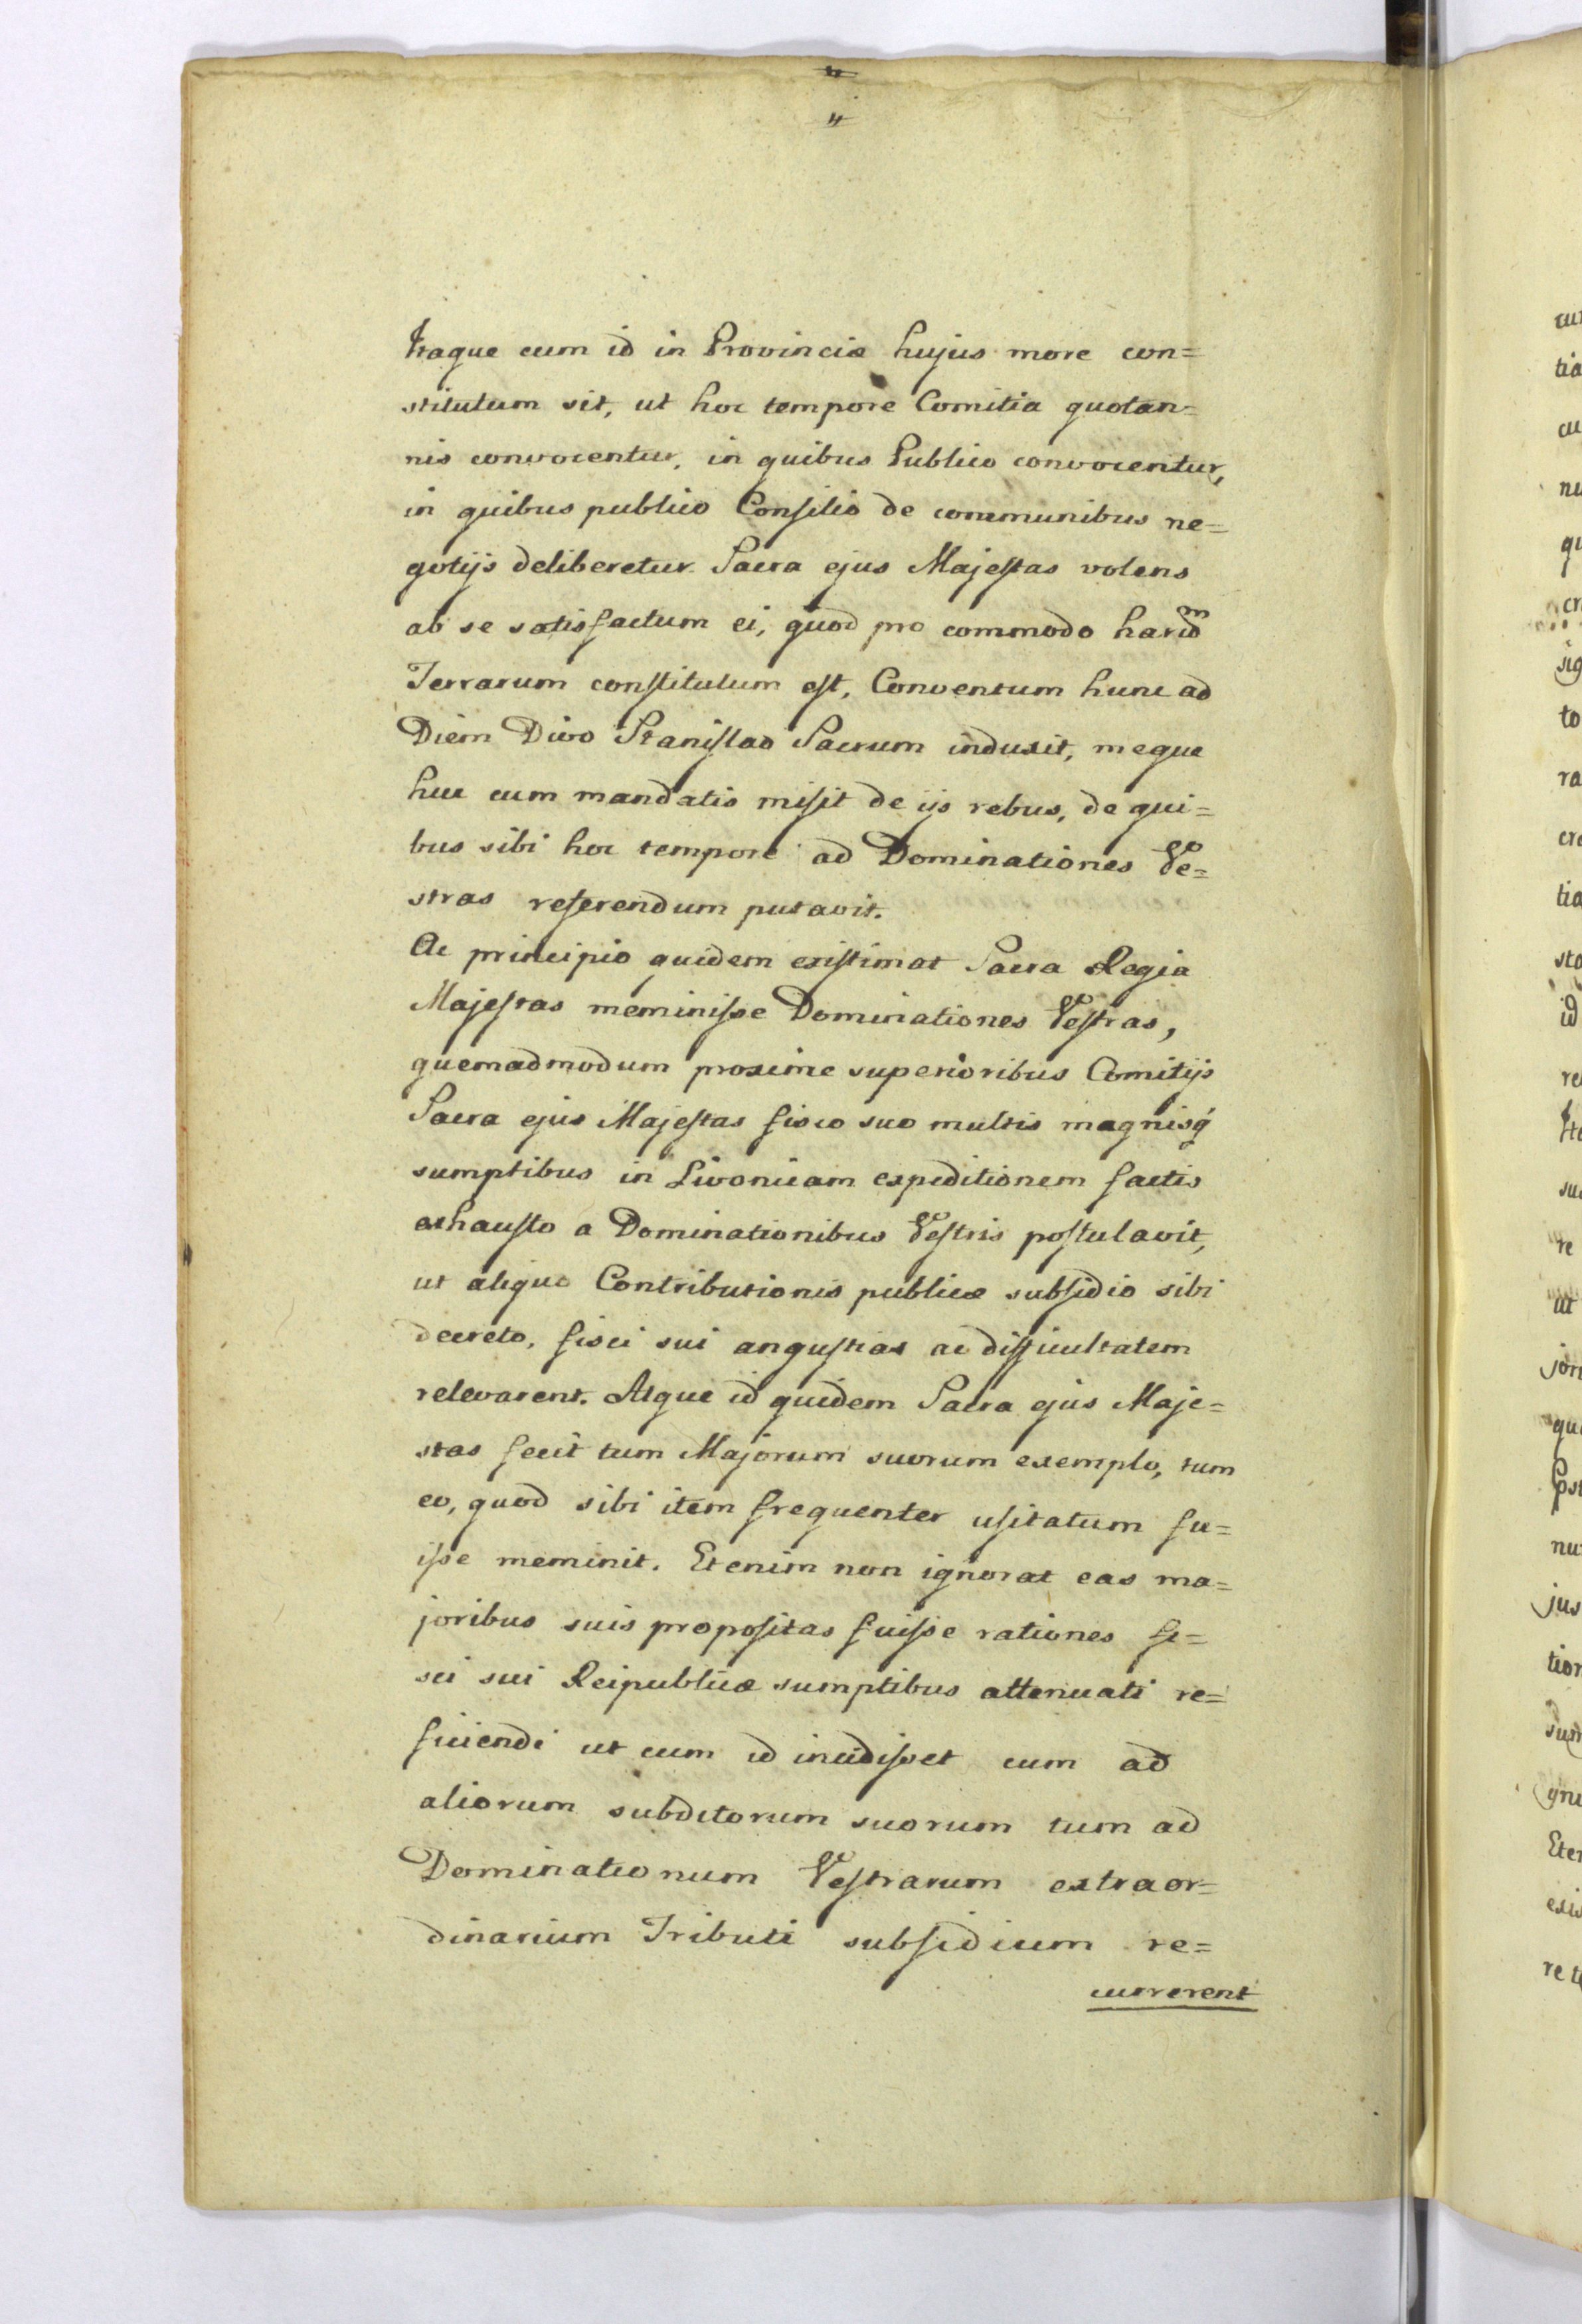 Itaque cum id in Provinciæ hujus more con=
stitutum sit, ut hoc tempore Comitia quotan=
nis convocentur, in quibus Publico convocentur,
in quibus publico Consilio de communibus ne=
gotijs deliberetur Sacra ejus Majestas volens
ab se satisfactum ei, quod pro commodo harum
Terrarum constitutum est, Conventum hunc ad
Diem Divo Stanislao Sacrum induxit, meque
huc cum mandatis misit de ijs rebus, de qui=
bus sibi hoc tempore ad Dominationes Ve=
stras referendum putavit.
Ac principio quidem existimat Sacra Regia
Majestas meminisse Dominationes Vestras,
quemadmodum proxime superioribus Comitijs
Sacra ejus Majestas fisco suo multis magnisq́
sumptibus in Livonicam expeditionem factis
exhausto a Dominationibus Vestris postulavit,
ut aliquo Contributionis publicæ subsidio sibi
decreto, fisci sui angustias ac difficultatem
relevarent. Atque id quidem Sacra ejus Maje=
stas fecit tum Majorum suorum exemplo, tum
eo, quod sibi item frequenter usitatum fu=
isse meminit. Etenim non ignorat eas ma=
joribus suis propositas fuisse rationes fi=
sci sui Reipublicæ sumptibus attenuati re=
ficiendi ut cum id incidisset cum ad
aliorum subditorum suorum tum ad
Dominationum Vestrarum extraor=
dinarium Tributi subsidium re=
currerent